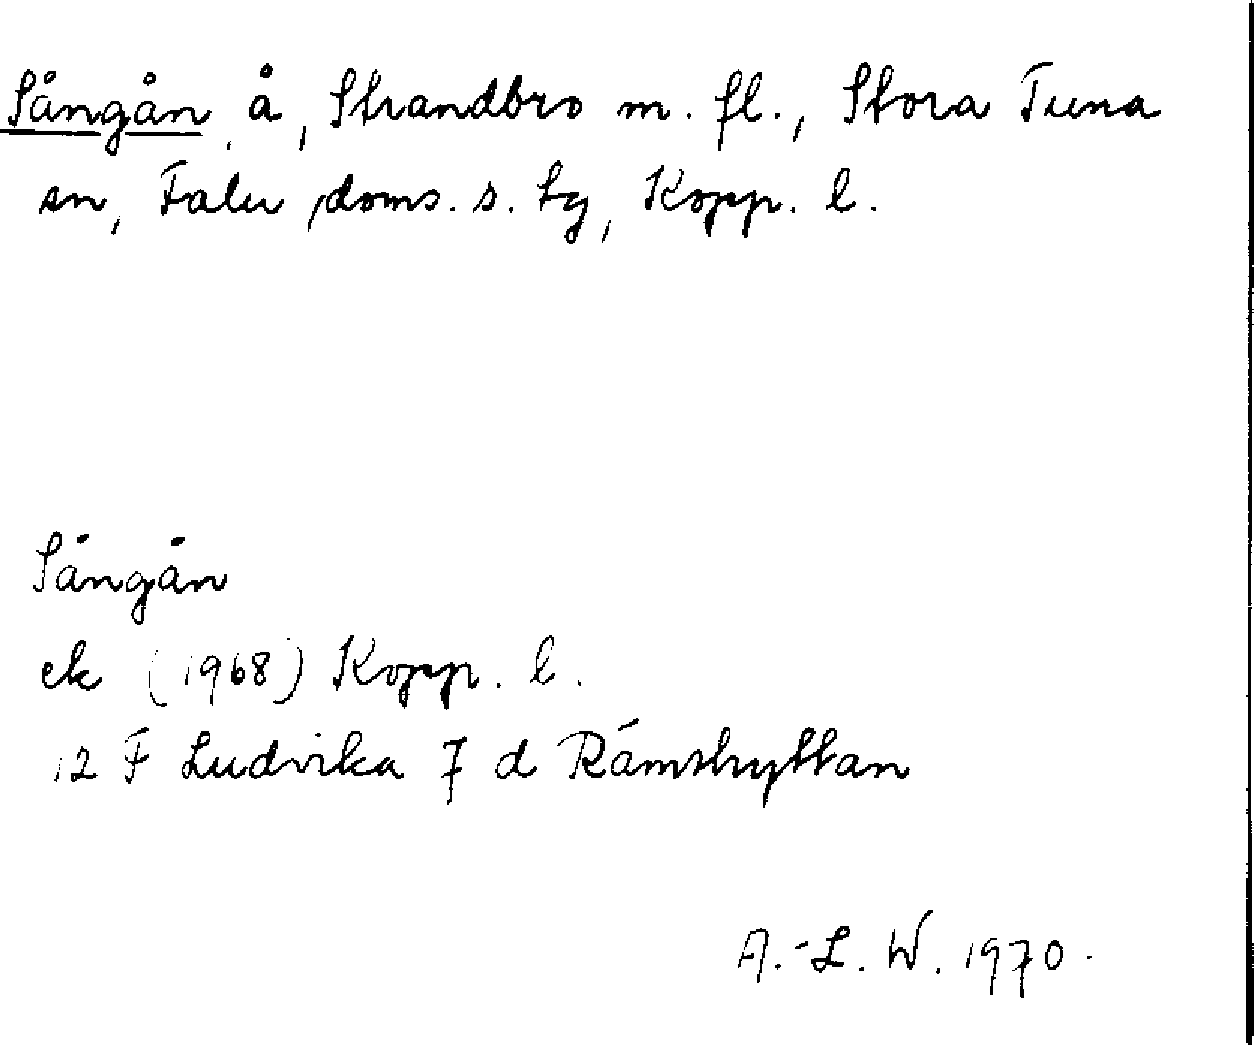 Sångån, å, Strandbro m. fl., Stora Tuna
sn, Falu doms. s. tg, Kopp. l.
Sångån
ek (1968) Kopp. l.
12 F Ludvika 7 d Rämshyttan
A.-L. W. 1970.